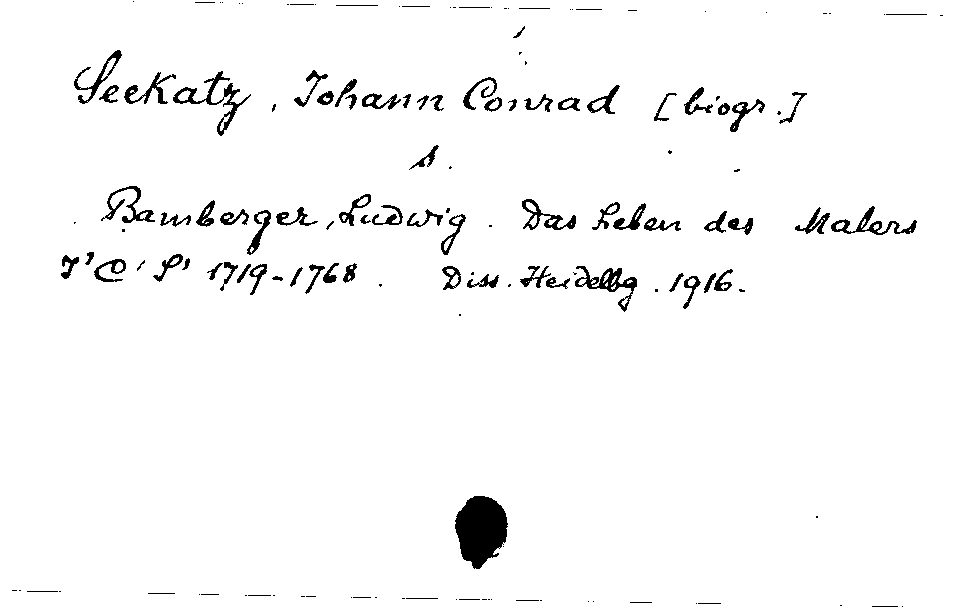 Seekatz, Johann Conrad [biogr.]
s.
Bamberger, Ludwig. Das Leben des Malers
J' C' S' 1719-1768. Diss. Heidelbg. 1916.